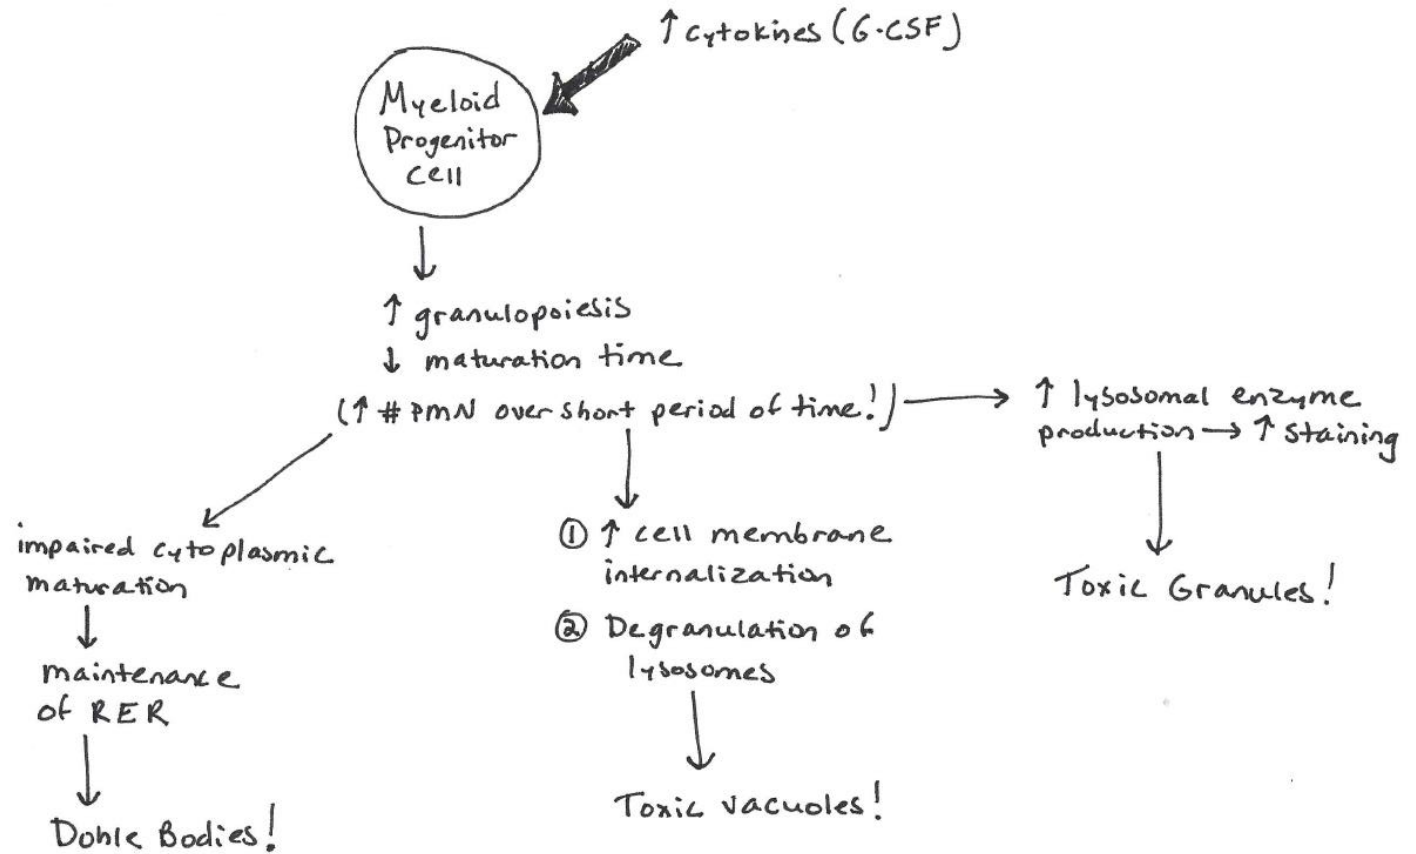 ↑ cytokines (G-CSF)
Myeloid
Progenitor
Cell
↑ granulopoiesis
↓ maturation time
(↑ # PMN over short period of time!)
↑ lysosomal enzyme
production → ↑ staining
Toxic Granules!
impaired cytoplasmic
maturation
maintenance
of RER
Dohle Bodies!
① ↑ cell membrane
internalization
② Degranulation of
lysosomes
Toxic vacuoles!